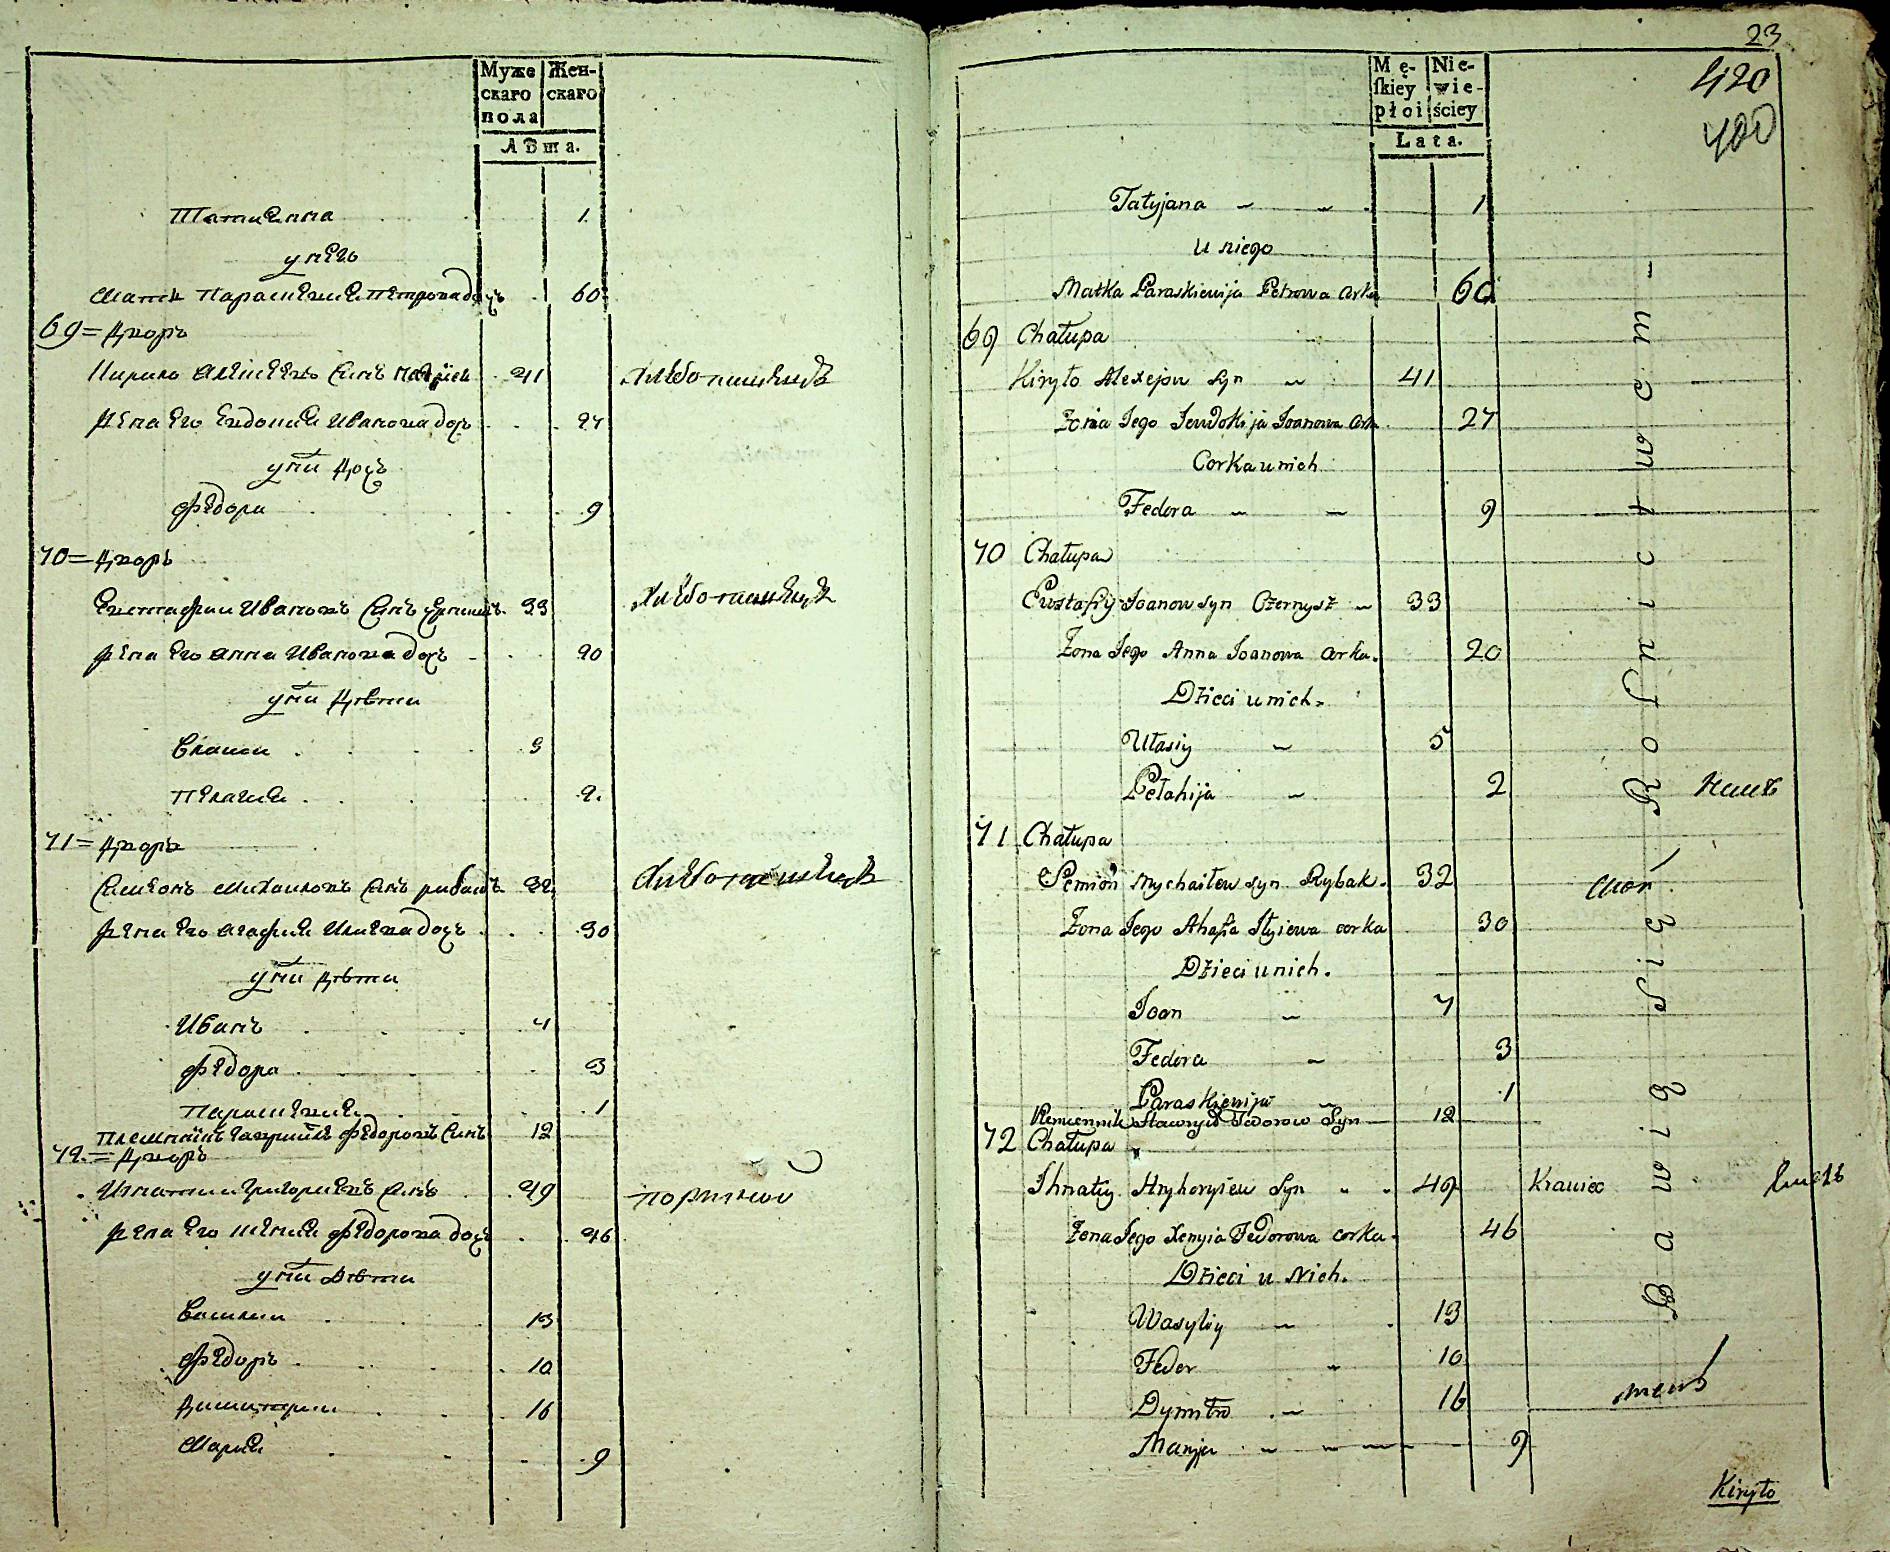 Муже Жен-
скаго скаго
пола
Лѣта.
Татиѧнна 1
у него
Мати Параскевиѧ Петрова дочь 60
69 = Дворъ
Кирило Алеѯеевъ синъ 41 хлѣбопашецъ
Жена его Евдокиѧ Иванова дочь 27
у них дочь
Федора 9
70 = Дворъ
Евстафии Ивановъ синъ Чернишъ 33 хлѣбопашецъ
Жена его Анна Иванова дочь 20
у них дѣти
Власии 5
Пелагиѧ 2
71 = Дворъ
Симеонъ Михаиловъ синъ Рибакъ 32 хлѣбопашецъ
Жена его Агафиѧ Илиева дочь 30
у них дѣти
Иванъ 7
Федора 3
Параскевиѧ 1
Племѣникъ Гавриилъ Федоровъ синъ 12
72 = Дворъ
Игнатии Григориевъ синъ 49 портнои
Жена его Ксениѧ Федорова дочь 46
у них дѣти
Василии 13
Федоръ 10
Димитрии 16
Мариѧ 9
23
420
400
Mę- Nie-
skiey wie-
płci ściey
Lata.
Tatyjana 1
u niego
Matka Paraskiewija Petrowa corka 60
69 Chałupa
Kiryło Alexejow syn 41
Zona Jego Jewdokija Joanowa corka 27
Corka u nich
Fedora 9
70 Chałupa
Eustafij Joanow syn Czernysz 33
Zona Jego Anna Joanowa corka 20
Dzieci u nich
Ułasiy 5
Pełahija 2
71 Chałupa
Semion Mychaiłow syn Rybak 32
Zona Jego Ahafia Iłyiewa corka 30
Dzieci u nich.
Joan 7
Fedora 3
Paraskiewija 1
Plemiennik Hawryło Fedorow Syn 12
72 Chałupa
Ihnatiy Hryhoryiew Syn 49 Krawiec
Zona Jego Xenyia Fedorowa corka 46
Dzieci u Nich.
Wasyliy 13
Fedor 10
Dymitro 16
Maryja 9
Kiryło